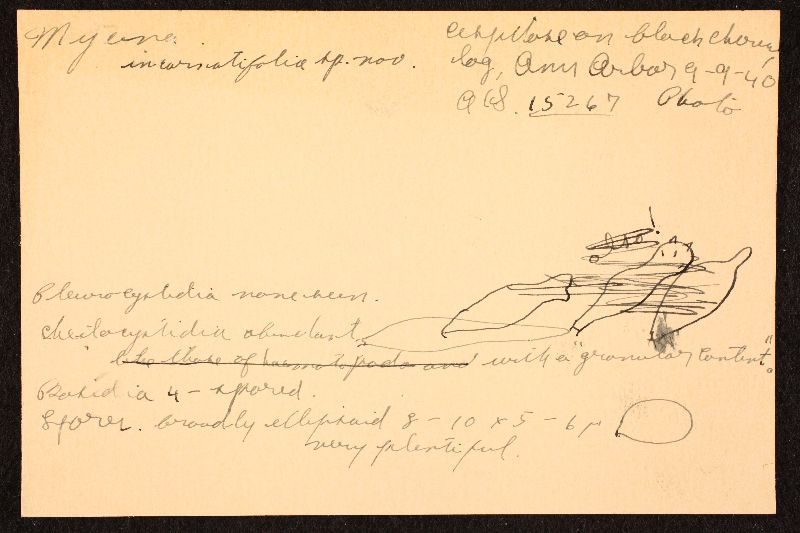 Mycena
incarnatifolia sp. nov.
cespitose on black cherry
log, Ann Arbor 9-9-40
AHS. 15267 Photo
also!
Pleurocystidia none seen.
Cheilocystidia abundant
like those of haematopoda and with a "granular content".
Basidia 4-spored.
Spores broadly ellipsoid 8-10 x 5-6 μ
very plentiful.